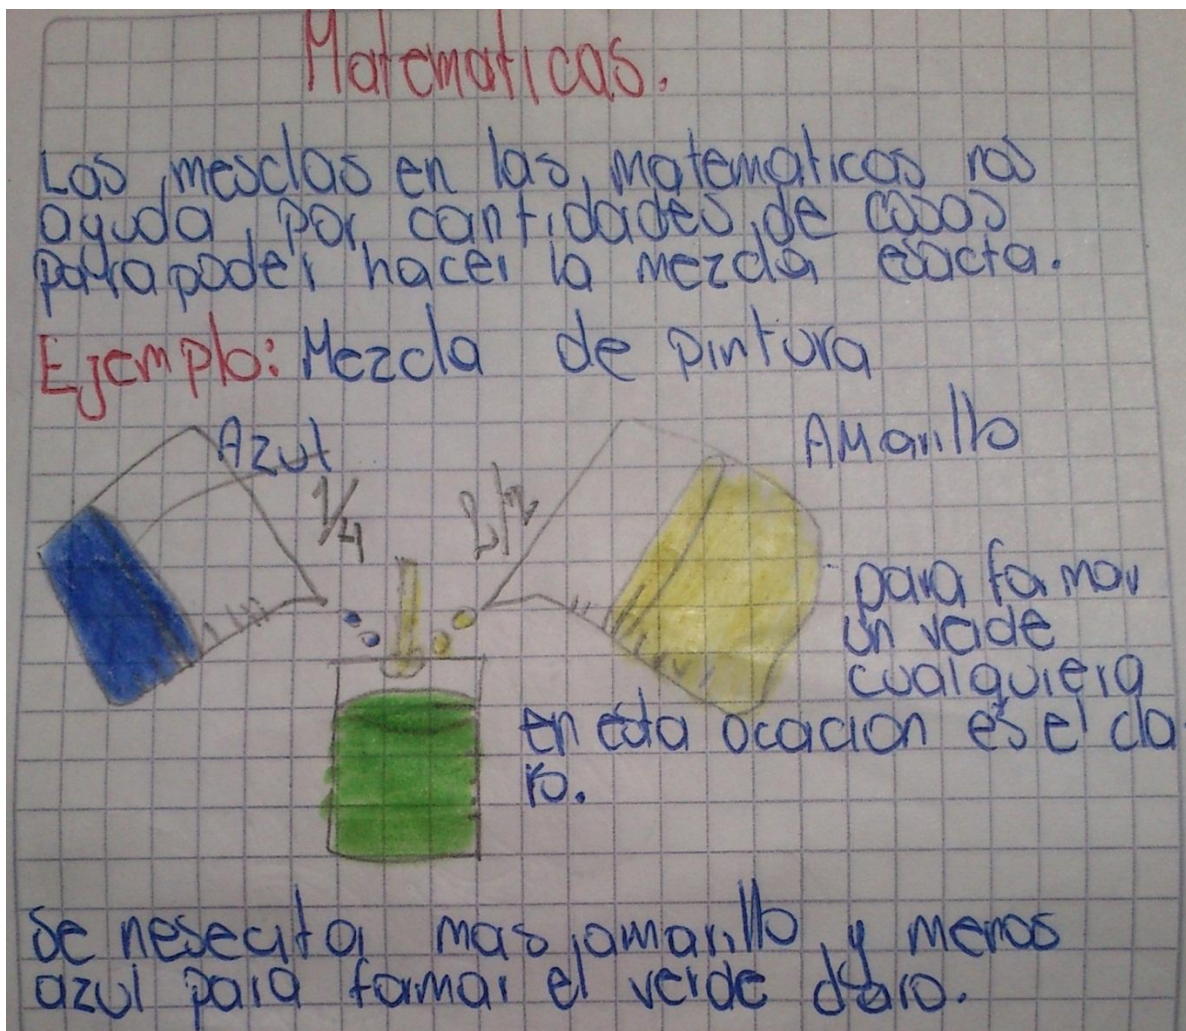 Matematicas.
Las mesclas en las matematicas nos
ayuda por cantidades de cosas
para poder hacer la mezcla esacta.
Ejemplo: Mezcla de pintura
Azul
Amarillo
1/4
1/2
para formar
un verde
cualquiera
en esta ocacion es el cla
ro.
Se nesecita mas amarillo y menos
azul para formar el verde claro.